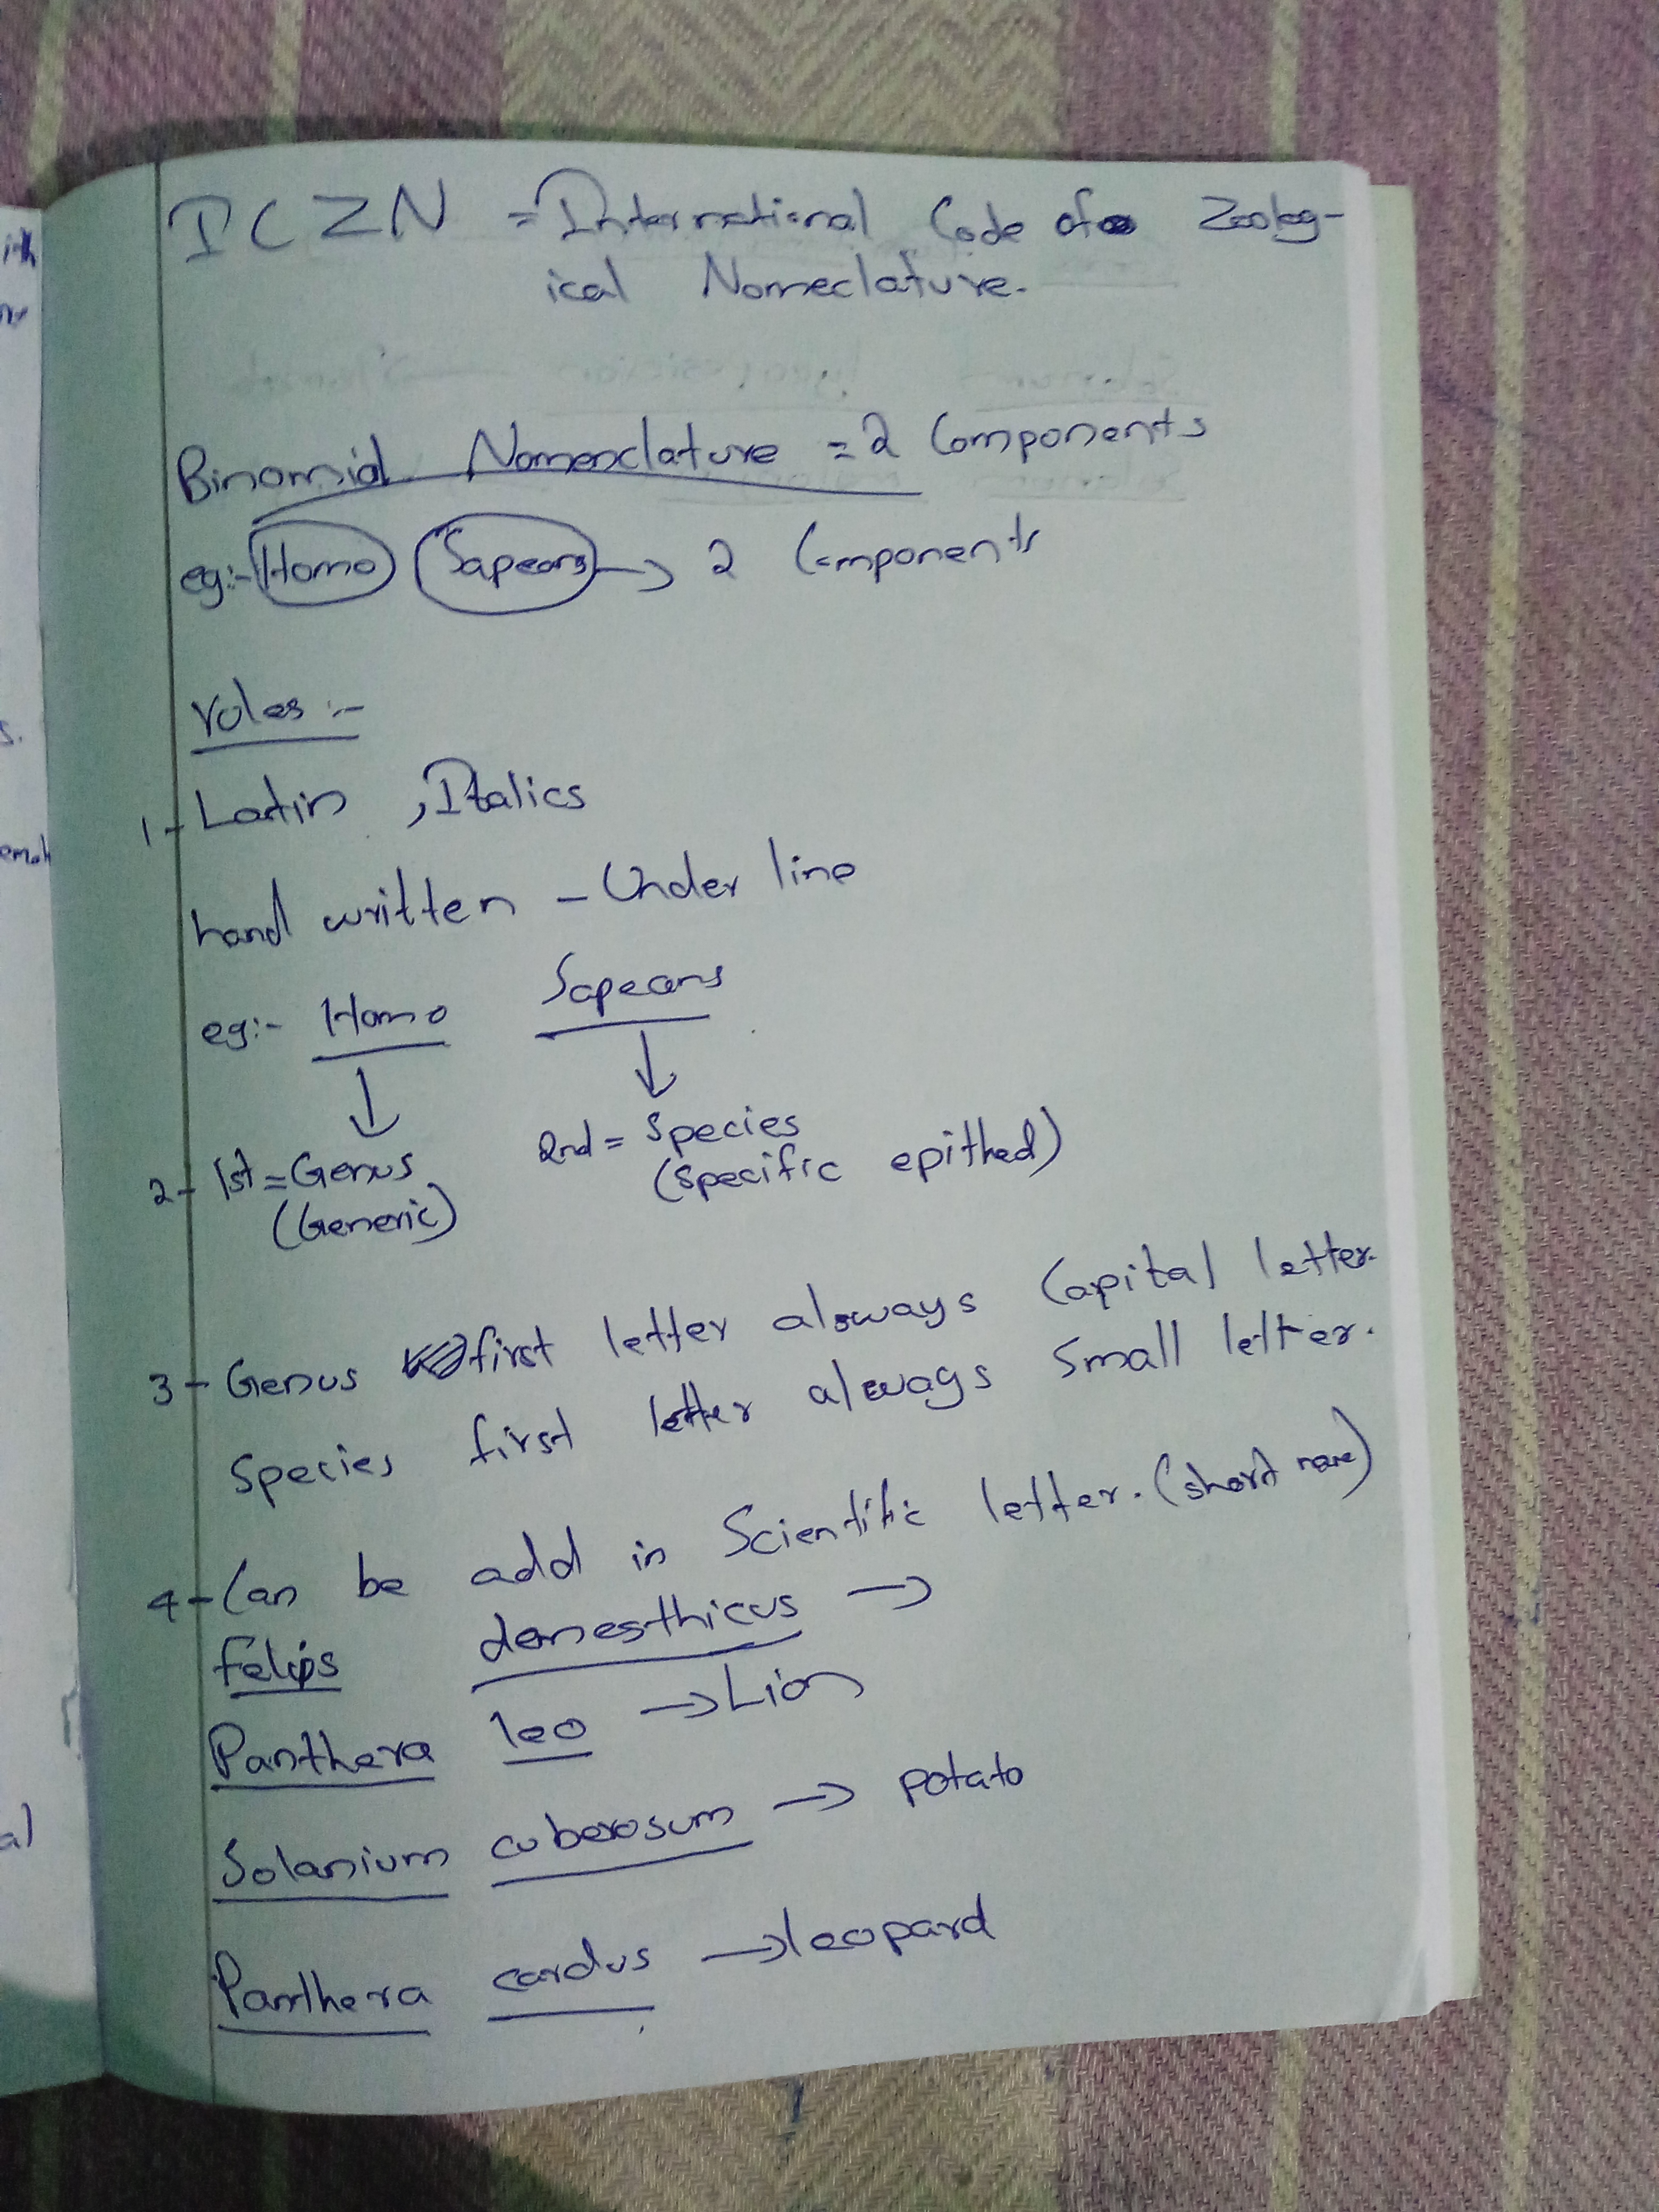 ICZN = International Code of Zoolog-
ical Nomeclature.
Binomial Nomenclature = 2 Components
eg:- Homo Sapeans → 2 Components
rules :-
1 - Latin , Italics
hand written - Under line
eg:- Homo Sapeans
2 - 1st = Genus 2nd = Species
(Generic) (specific epithed)
3 - Genus first letter always Capital letter.
Species first letter always small letter.
4 - Can be add in Scientific letter. (short name)
Felips domesthicus →
Panthera leo → Lion
Solanium cuberosum → potato
Panthera cardus → leopard